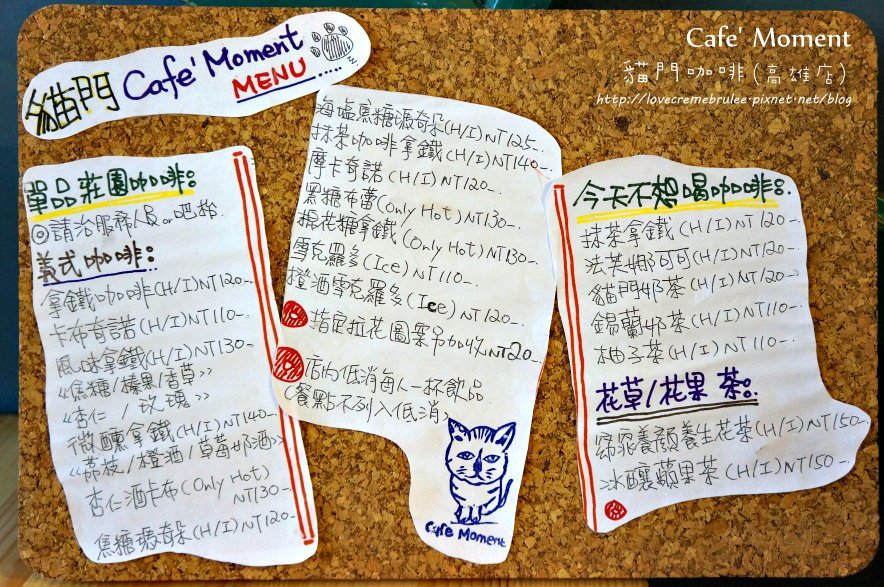 貓門 Cafe' Moment
MENU.....
Cafe' Moment
貓門咖啡(高雄店)
http://lovecremebrulee.pixnet.net/blog
單品莊園咖啡:
◎請洽服務人員or吧枱.
義式咖啡:
拿鐵咖啡(H/I)NT120-.
卡布奇諾(H/I)NT110-.
風味拿鐵(H/I)NT130-
《焦糖/榛果/香草》
《杏仁/玫瑰》
微醺拿鐵(H/I)NT140-
《荔枝/橙酒/草莓奶酒》
杏仁酒卡布(Only Hot)
NT130-.
焦糖瑪奇朵(H/I)NT120-
海塩焦糖瑪奇朵(H/I)NT125-
抹茶咖啡拿鐵(H/I)NT140-.
摩卡奇諾(H/I)NT120-.
黑糖布蕾(Only Hot)NT130-
棉花糖拿鐵(Only Hot)NT130-
雪克羅多(Ice)NT110-.
橙酒雪克羅多(Ice)NT120-.
指定拉花圖案另加收NT20-.
店內低消每人一杯飲品
(餐點不列入低消)
Cafe Moment
今天不想喝咖啡:.
抹茶拿鐵(H/I)NT120-.
法芙娜可可(H/I)NT120-.
貓門奶茶(H/I)NT120-.
錫蘭奶茶(H/I)NT110-
柚子茶(H/I)NT110-.
花草/花果 茶:.
窈窕養顏養生花茶(H/I)NT150-.
冰釀蘋果茶(H/I)NT150-.